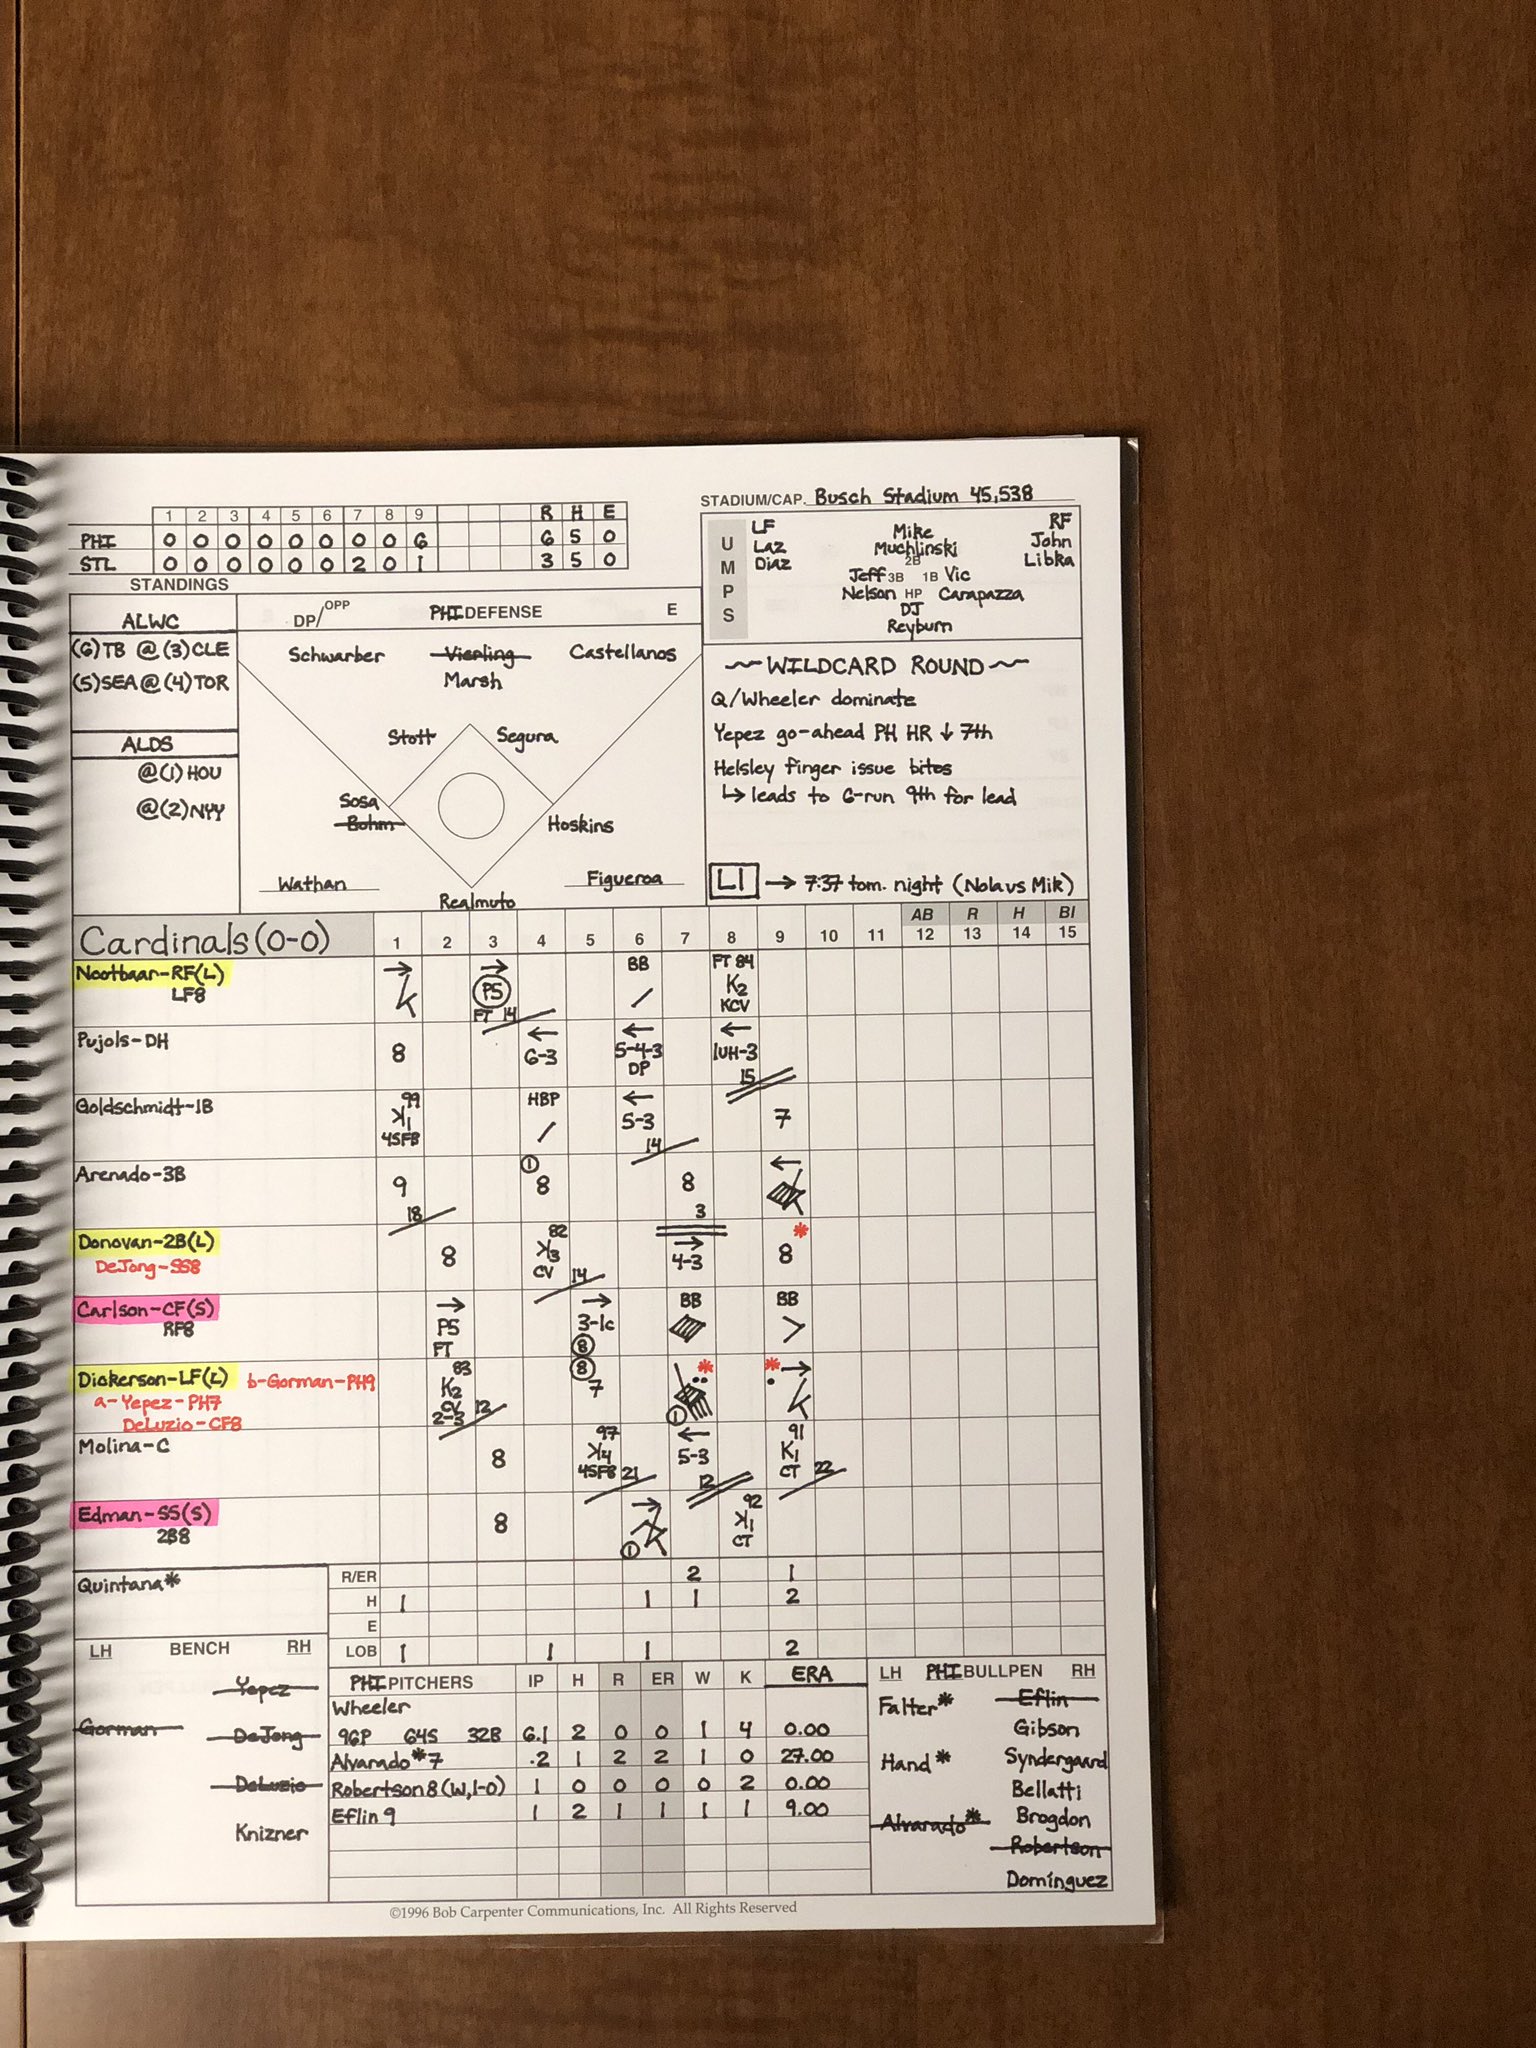 STADIUM/CAP. Busch Stadium 45,538
1 2 3 4 5 6 7 8 9 R H E
PHI 0 0 0 0 0 0 0 0 6 6 5 0
STL 0 0 0 0 0 0 2 0 1 3 5 0
UMPS
LF Laz Diaz
Mike Muchlinski 2B
RF John Libka
Jeff Nelson 3B
1B Vic Carapazza
HP DJ Reyburn
STANDINGS
ALWC
(6)TB @ (3)CLE
(5)SEA @ (4)TOR
ALDS
@(1)HOU
@(2)NYY
DP/OPP PHI DEFENSE E
Schwarber Vierling Castellanos
Marsh
Stott Segura
Sosa
Bohm Hoskins
Wathan Figueroa
Realmuto
~WILDCARD ROUND~
Q/Wheeler dominate
Yepez go-ahead PH HR ↓ 7th
Helsley finger issue bites
↳ leads to 6-run 9th for lead
L1 → 7:37 tom. night (Nola vs Mik)
AB R H BI
Cardinals (0-0) 1 2 3 4 5 6 7 8 9 10 11 12 13 14 15
Nootbaar-RF(L) → K → P5 BB FT 84
LF8 FT 14 K2 KCV
Pujols-DH 8 ← 6-3 ← 5-4-3 DP ← 1UH-3 15
Goldschmidt-1B 99 K1 4SFB HBP ← 5-3 14 7
Arenado-3B 9 18 1 8 8 3 ←
Donovan-2B(L) 8 82 K3 CV 14 → 4-3 8 *
DeJong-SS8
Carlson-CF(S) → P5 FT → 3-1c 8 BB BB
RF8
Dickerson-LF(L) b-Gorman-PH9 83 K2 CV 2-3 12 8 7 * 1 * →
a-Yepez-PH7
DeLuzio-CF8
Molina-C 8 97 K4 4SFB 21 ← 5-3 12 91 K1 CT 22
Edman-SS(S) 8 → 1 92 K1 CT
2B8
Quintana*
R/ER 2 1
H 1 1 1 2
E
LOB 1 1 1 2
LH BENCH RH
Yepez
Gorman DeJong
DeLuzio
Knizner
PHI PITCHERS IP H R ER W K ERA
Wheeler
96P 64S 32B 6.1 2 0 0 1 4 0.00
Alvarado*7 .2 1 2 2 1 0 27.00
Robertson 8 (W, 1-0) 1 0 0 0 0 2 0.00
Eflin 9 1 2 1 1 1 1 9.00
LH PHI BULLPEN RH
Falter* Eflin
Gibson
Hand* Syndergaard
Bellatti
Alvarado* Brogdon
Robertson
Domínguez
©1996 Bob Carpenter Communications, Inc. All Rights Reserved